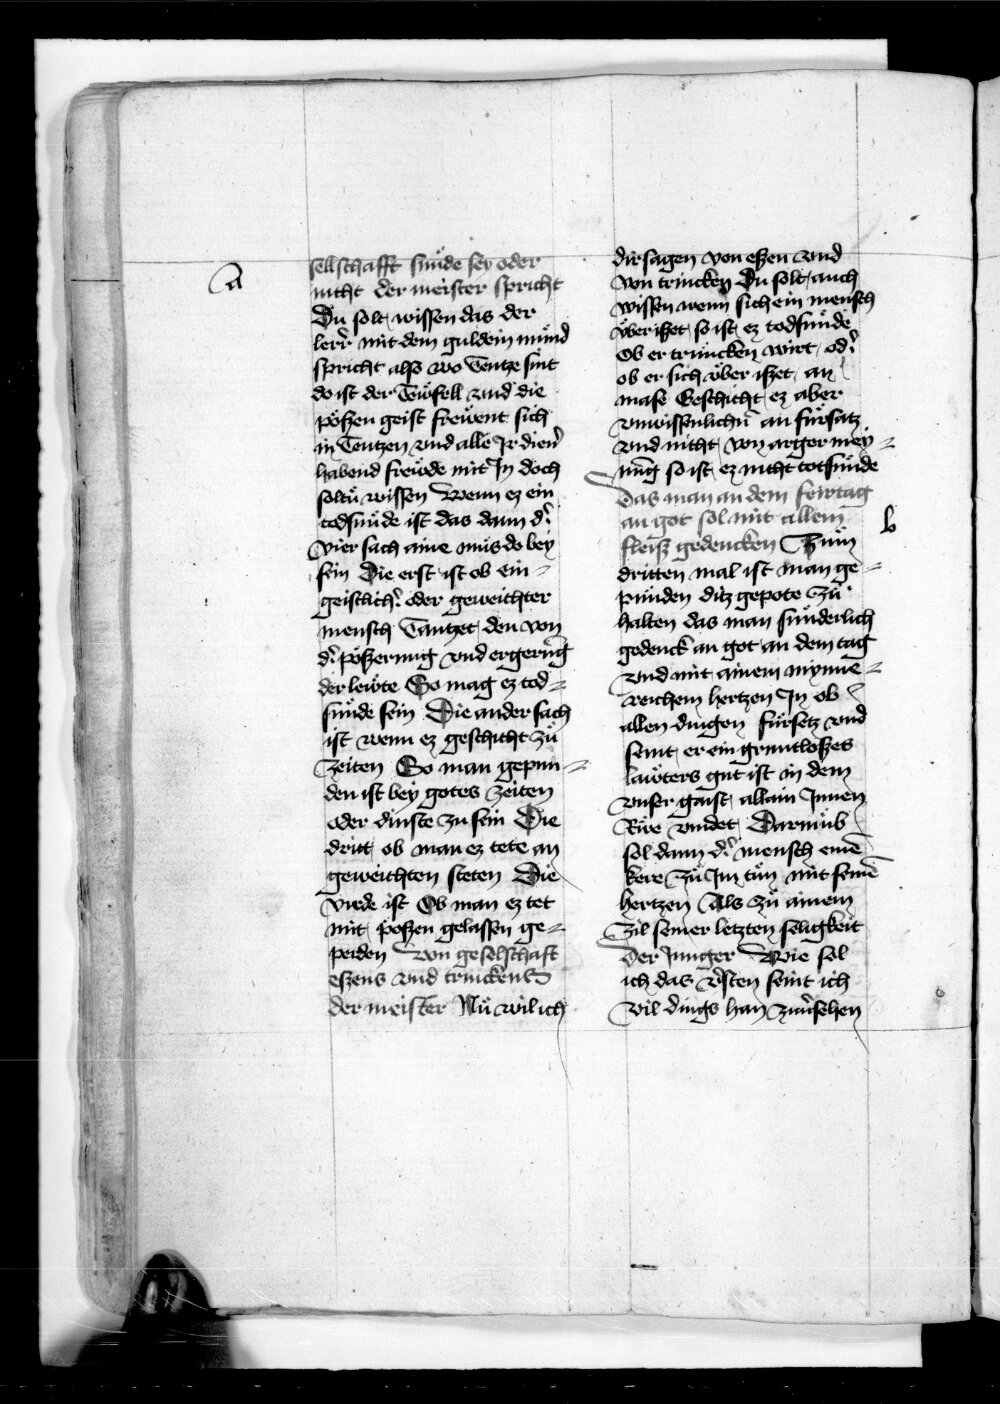 a
sellschafft sünde sey oder
nicht der meister spricht
Du solt wissen das der
lerr̄ mit dem guldein mu̇nd
spricht alß wo Tentze sint
do ist der Tewfell vnd die
pößen geist frewent sich
in Tentzen vnd alle Ir dien̄
habend frewde mit In doch
soltu̇ wissen Wenn ez ein
todsünde ist das dann d̉
vier sach aine mus do bey
sein Die erst ist ob ein-
geistlich̉ oder geweichter
mensch Tantzet den von
d̉ pößerung vnd ergerūg
der lewte So mag ez tod-
sünde sein Die ander sach
ist wenn ez geschicht zü
zeiten So man gepun-
den ist bey gotes zeiten
oder dinste zu sein Die
dritt ob man ez tete an
geweichten steten Die
virde ist Ob man ez tet
mit pößen gelassen ge-
perden Von geselschaft
eßens vnd trinckens
der meister Nü wil ich
dir sagen von eßen vnd
von trincken Du solt auch
wissen wenn sich ein mensch
v̈ber ißet so ist ez todsünde
Ob er truncken wirt od̉
ob er sich v̈ber ißet an
mase Geschicht ez aber
vnwissenlichn̄ an fürsatz
vnd nicht von arger mey-
nūg so ist ez nicht totsünde
Das man an dem feirtag
an got sol mit allem
b
fleisz gedencken Zum
dritten mal ist man ge-
punden ditz gepote zü
halten das man sünderlich
gedenck an got an dem tag
vnd mit ainem mynne-
reichem hertzen In ob
allen dingen fürsetz vnd
seint er ein gruntloßes
lawters gut ist in dem
vnser gaist allain Innen
Rüe vindet Darumb
sol dann d̉ mensch eine
kere zü Im tün mit seinē
hertzen Als zü ainem
zil seiner letzten seligkeit
Der Junger Wie sol
ich das v̉sten seint ich
vil dings han zuu̇sehen